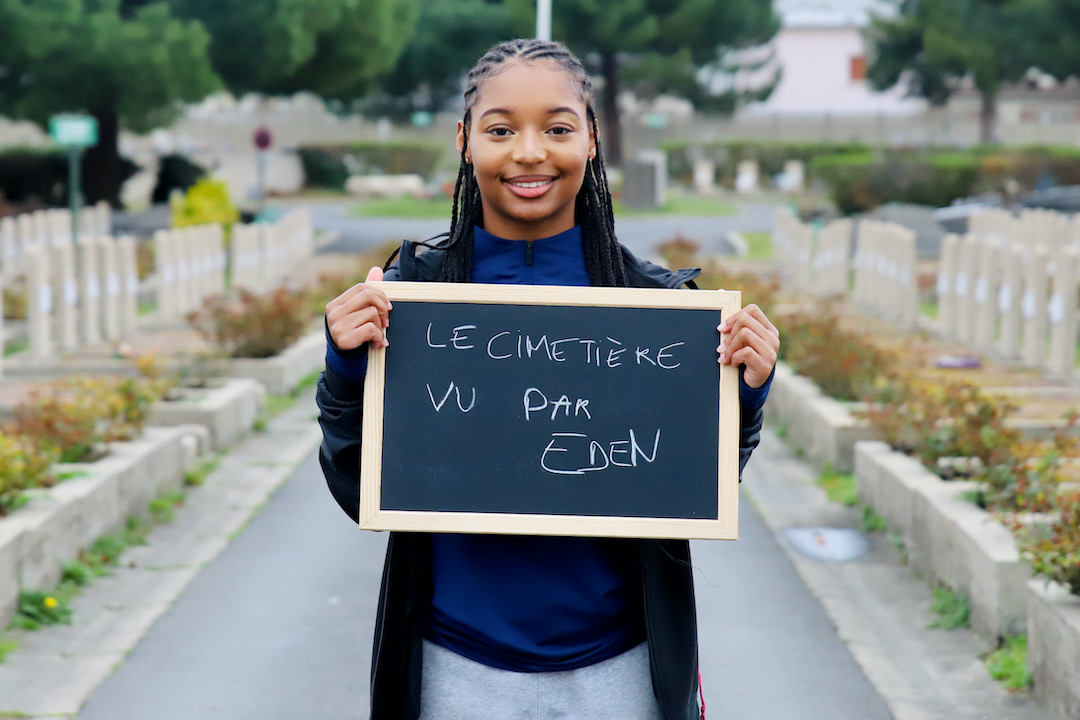 LE CIMETIÈRE
VU PAR
EDEN